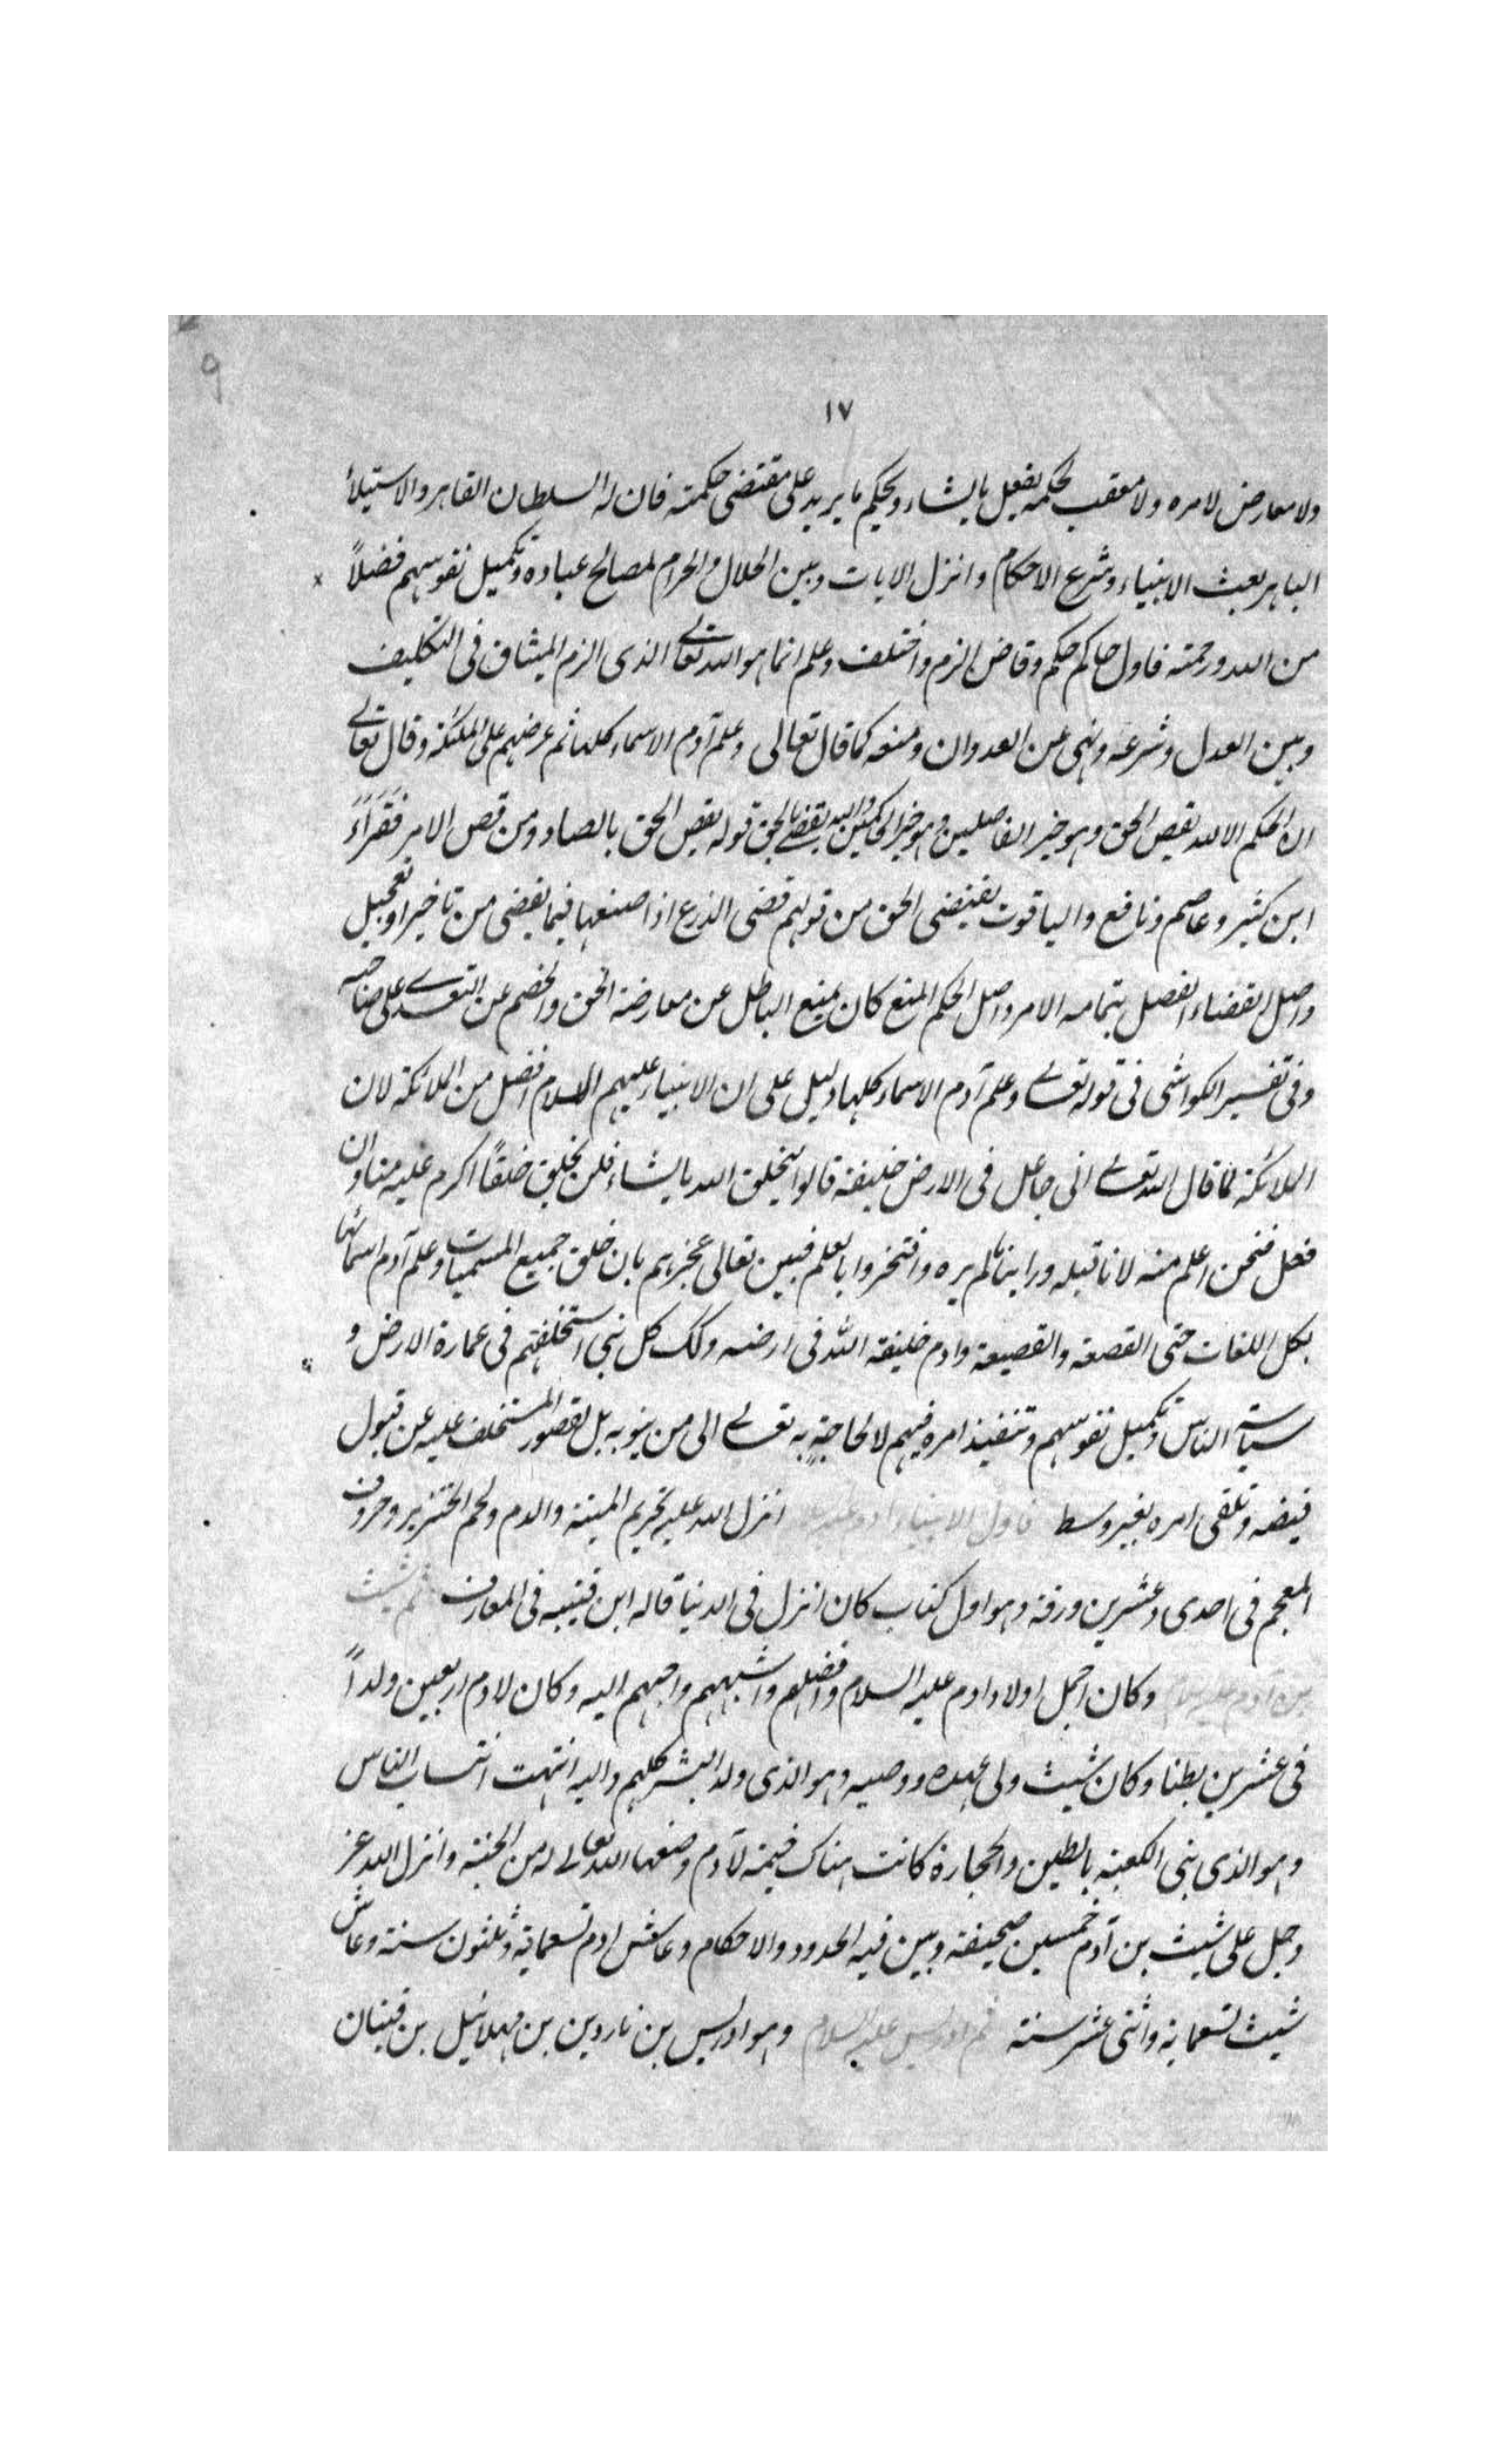 9
١٧
ولا معارض لامره ولا معقب لحكمه يفعل ما يشاء ويحكم ما يريد على مقتضى حكمته فان له السلطان القاهر والاستيلأ
الباهر بعث الانبياء وشرع الاحكام وانزل الايات وبين الحلال والحرام لمصالح عباده وتكميل نفوسهم فضلاً
من الله ورحمته فاول حاكم حكم وقاض الزم واختلف وعلم انما هو الله تعالى الذى الزم الميثاق فى التكليف
وبين العدل وشرعه ونهى عن العدوان ومنعه كما قال تعالى وعلم آدم الاسماء كلها ثم عرضهم على الملئكة وقال تعالى
ان الحكم الا لله يقص الحق وهو خير الفاصلين وهو خير الحاكمين والله يقضى بالحق قوله يقص الحق بالصاد ومن قص الامر فَقَرَأَءَ
ابن كثير وعاصم ونافع والياقوت يقتضى الحق من قولهم قضى الذرع اذا صنعها فيما يقضى من تاخير او تعجيل
واصل القضاء الفصل بتمامه الامر واصل الحكم المنع كان يمنع الباطل عن معارضة الحق والخصم عن التعدى على صاحبه
وفى تفسير الكواشى فى قوله تعالى وعلم آدم الاسماء كلها دليل على ان الانبياء عليهم السلام افضل من الملائكة لان
الملائكة لما قال الله تعالى انى جاعل فى الارض خليفة قالوا ليخلق الله ما يشاء فلن يخلق خلقاً اكرم عليه منا وان
فعل فنحن اعلم منه لانا قبله وراينا ما لم يره وافتخروا بالعلم فبين تعالى عجزهم بان خلق جميع المسميات وعلم آدم اسمائها
بكل اللغات حتى القصعة والقصيعة وادم خليفة الله فى ارضه وكذلك كل نبى استخلفهم فى عمارة الارض و
سياسة الناس وتكميل نفوسهم وتنفيذ امره فيهم لا لحاجةٍ به تعالى الى من ينوبه بل لقصور المستخلف عليه عن قبول
فيضه وتلقى امره بغير وسط فاول الانبياء ادم عليه انزل الله عليه تحريم الميتة والدم ولحم الخنزير وحروف
المعجم فى احدى وعشرين ورقة وهو اول كتاب كان انزل فى الدنيا قاله ابن قتيبه فى المعارف ثم شيث
بن آدم عليه السلام وكان اجمل اولاد ادم عليه السلام وافضلهم واشبههم واحبهم اليه وكان لادم اربعين ولداً
فى عشرين بطنا وكان شيث ولى عهده ووصيه وهو الذى ولد البشر كلهم واليه انتهت انتساب الناس
وهو الذى بنى الكعبة بالطين والحجارة كانت هناك خيمة لآدم وضعها الله تعالى له من الجنة وانزل الله عز
وجل على شيث بن آدم خمسين صحيفة وبين فيه الحدود والاحكام وعاش ادم تسعماية وثلثون سنة وعاش
شيث تسعماية واثنى عشر سنة ثم ادريس عليه السلام وهو ادريس بن ناردين بن مهلائيل بن قينان